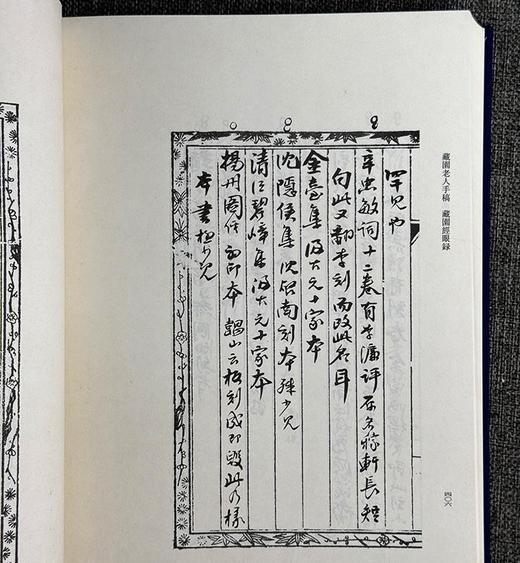 藏園老人手稿 藏園經眼録
四〇六
罕見也
辛忠敏詞十二卷有李濂評 原名稼軒長短
句此又翻李刻而改此名耳
金臺集 汲古元十家本
沈隱侯集 沈啟南刻本 殊少見
清江碧嶂集 汲古元十家本
揚州圖經 初印本 韻山云板刻成即毀此乃樣
本書極少見